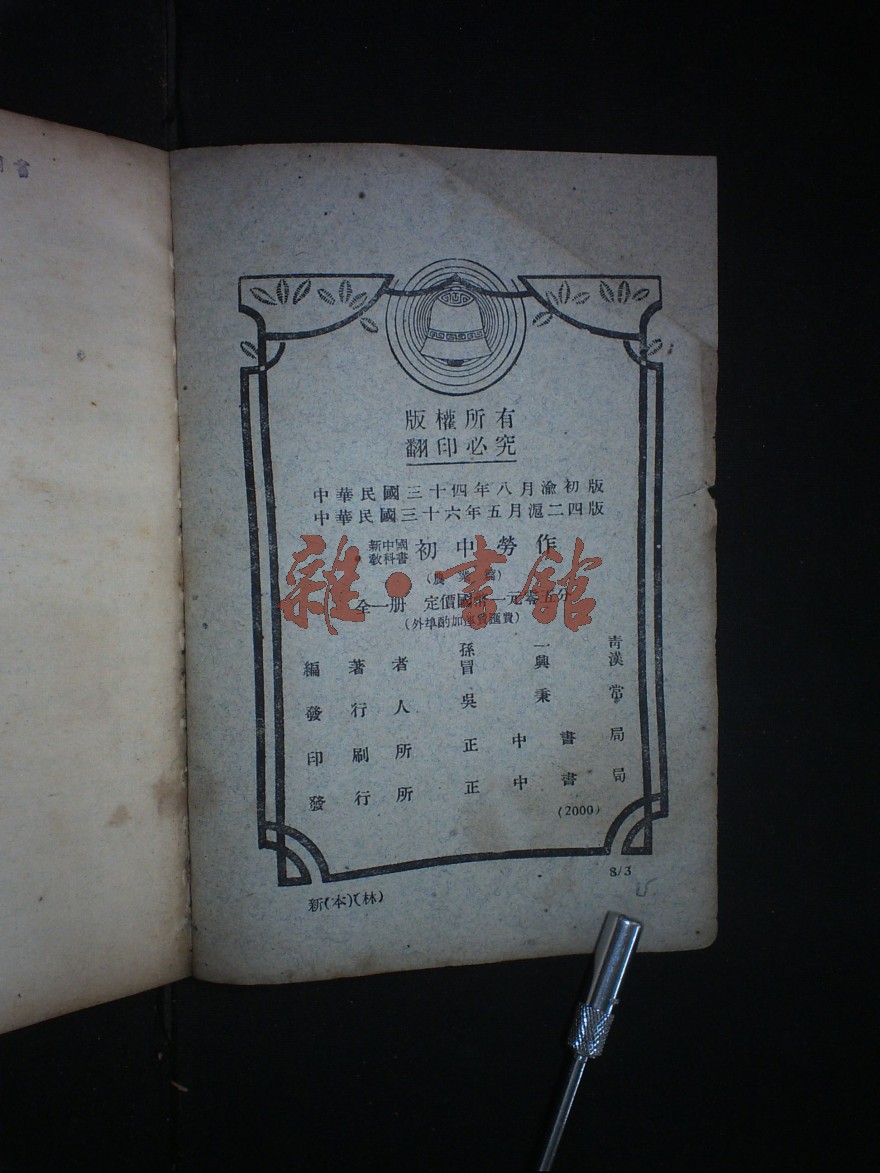 書
版權所有
翻印必究
中華民國三十四年八月渝初版
中華民國三十六年五月滬二四版
新中國
教科書
初中勞作
(農業篇)
全一册 定價國幣一元零五分
(外埠酌加運費匯費)
編著者 孫一青
冒興漢
發行人 吳秉常
印刷所 正中書局
發行所 正中書局
(2000)
新(本)(林)
8/3
雜·書館